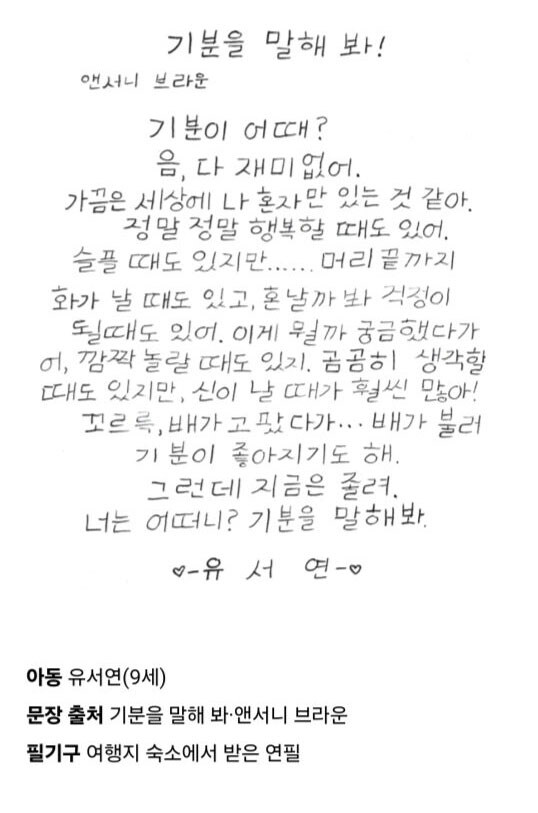 기분을 말해 봐!
앤서니 브라운
기분이 어때?
음, 다 재미없어.
가끔은 세상에 나 혼자만 있는 것 같아.
정말 정말 행복할 때도 있어.
슬플 때도 있지만...... 머리 끝까지
화가 날 때도 있고, 혼날까 봐 걱정이
될때도 있어. 이게 뭘까 궁금했다가
어, 깜짝 놀랄 때도 있지. 곰곰히 생각할
때도 있지만, 신이 날 때가 훨씬 많아!
꼬르륵, 배가 고팠다가... 배가 불러
기분이 좋아지기도 해.
그런데 지금은 졸려.
너는 어떠니? 기분을 말해봐.
♡-유 서 연-♡
아동 유서연(9세)
문장 출처 기분을 말해 봐·앤서니 브라운
필기구 여행지 숙소에서 받은 연필